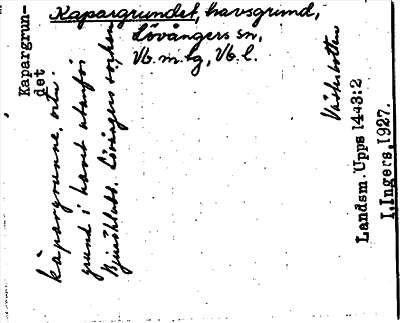 Kapargrundet, havsgrund,
Lövångers sn,
Vb. m. tg, Vb. l.
Kapargrun-
det
kàpargrunne, ortn.
grund i havet utanför
Bjuröklubb. Lövångers socken
Västerbotten
Landsm. Upps 1443:2
I, Ingers, 1927.